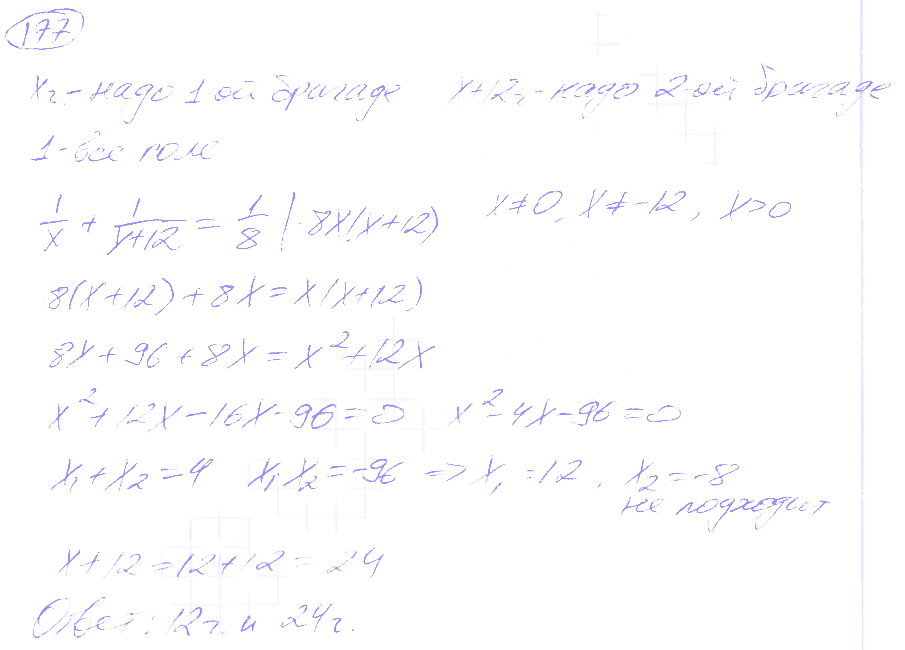 177
x ч - надо 1-ой бригаде x+12 ч - надо 2-ой бригаде
1 - все поле
1/x + 1/(x+12) = 1/8 | · 8x(x+12) x≠0, x≠-12, x>0
8(x+12)+8x=x(x+12)
8x+96+8x=x²+12x
x²+12x-16x-96=0 x²-4x-96=0
x₁+x₂=4 x₁x₂=-96 => x₁=12, x₂=-8
не подходит
x+12=12+12=24
Ответ: 12ч. и 24ч.